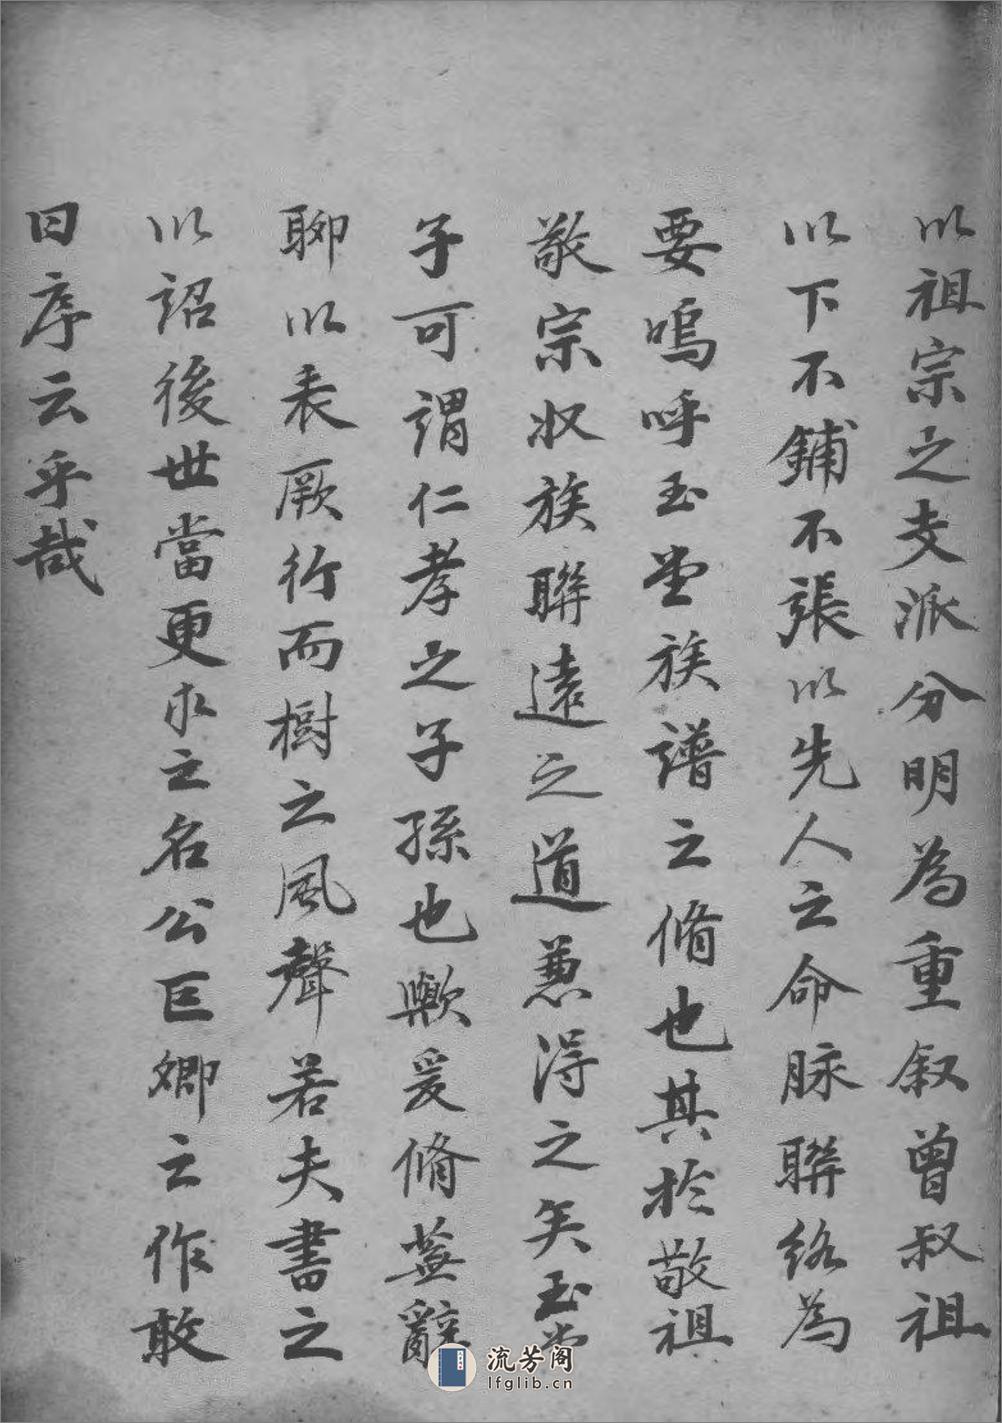 以祖宗之支派分明為重叙曾叔祖
以下不鋪不張以先人之命脉聯絡為
要嗚呼玉堂族譜之脩也其於敬祖
敬宗收族聯遠之道兼得之矣玉堂
子可謂仁孝之子孫也歟爰脩蕪辭
聊以表厥行而樹之風聲若夫書之
以詔後世當更求之名公巨卿之作敢
曰序云乎哉
流芳阁
lfglib.cn